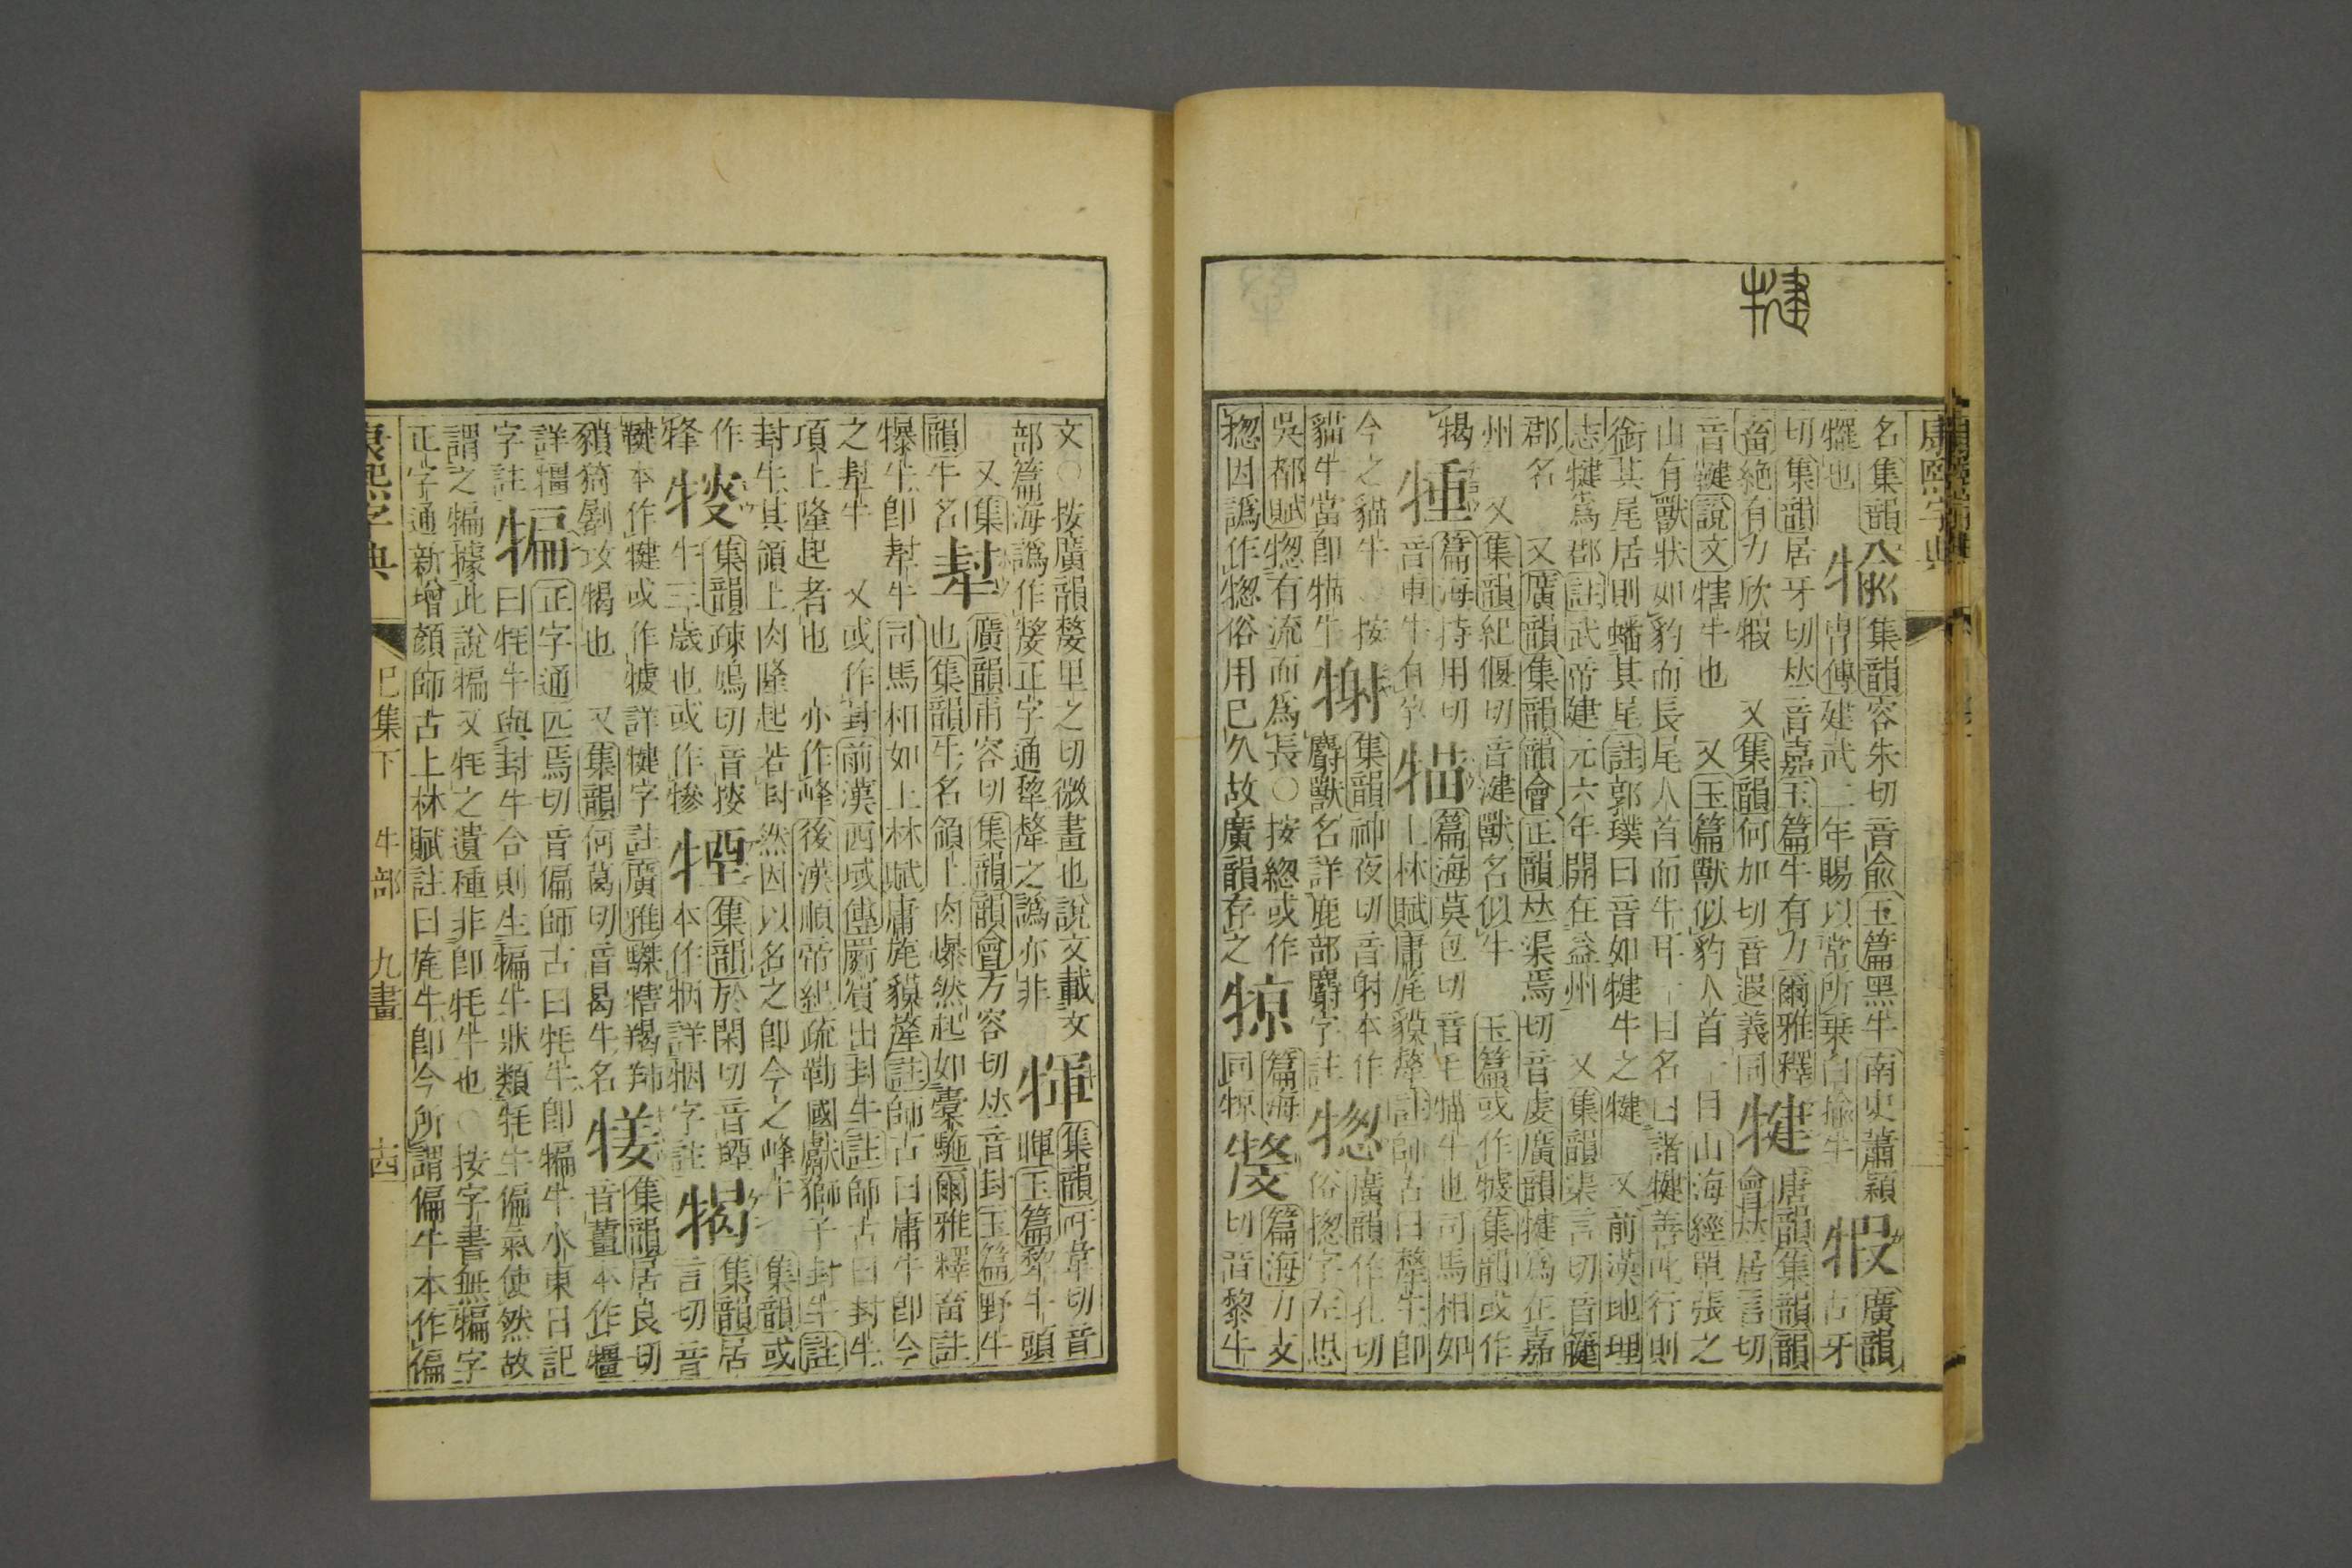 康熙字典
犍
名集韻𤚎集韻容朱切音兪玉篇黑牛南史蕭穎犌廣韻
犤也 冑傳建武二年賜以常所乗白揄牛 古牙
切集韻居牙切𠀤音嘉玉篇牛有力爾雅釋犍唐韻集韻韻
畜絶有力欣犌 又集韻何加切音遐義同 會𠀤居言切
音鞬說文犗牛也 又玉篇獸似豹人首一目山海經單張之
山有獸狀如豹而長尾人首而牛耳一目名曰諸犍善吒行則
銜其尾居則蟠其尾註郭璞曰音如犍牛之犍 又前漢地理
志犍爲郡註武帝建元六年開在益州 又集韻渠言切音籧
郡名 又廣韻集韻韻會正韻𠀤渠焉切音虔廣韻犍爲在嘉
州 又集韻紀偃切音湕獸名似牛 玉篇或作㹂集韻或作
㹇 篇海持用切 篇海莫包切音毛猫牛也司馬相如
音重牛有孕 上林賦𤛿旄貘犛註師古曰犛牛卽
今之貓牛○按 集韻神夜切音射本作 廣韻作孔切
貓牛當卽牛 麝獸名詳鹿部麝字註 俗揔字左思
吳都賦惣有流而爲長○按緫或作 篇海 篇海力支
揔因譌作惣俗用已久故廣韻存之犃 同犉 切音黎牛
文○按廣韻犛里之切微畫也說文載文 集韻吁韋切音
部篇海譌作犛正字通犂犛之譌亦非 暉玉篇犂牛頭
又集 犎 廣韻甫容切集韻韻會方容切𠀤音封玉篇野牛
韻牛名 也集韻牛名領上肉㸿然起如橐駞爾雅釋畜註
犦牛卽犎牛 司馬相如上林賦庸旄貘犛註師古曰庸牛卽今
之犎牛 又或作封前漢西域傳罽賔出封牛註師古曰封牛
項上隆起者也 亦作峰後漢順帝紀疏勒國獻獅子封牛註
封牛其領上肉隆起若封然因以名之卽今之峰牛 集韻或
作 集韻疎鳩切音㨃 集韻於閑切音黫 集韻居
㸼 牛三歲也或作犙 本作牰詳牰字註㹇言切音
鞬本作犍或作㹂詳犍字註廣雅騬犗羯 集韻居良切
豶猗劇攻㹇也 又集韻何葛切音曷牛名 音薑本作犟
詳犟 犏 正字通匹焉切音偏師古曰牦牛卽犏牛小東日記
字註 曰牦牛與封牛合則生犏牛狀類牦牛偏氣使然故
謂之犏據此說犏又牦之遺種非卽牦牛也○按字書無犏字
正字通新增顏師古上林賦註曰旄牛卽今所謂偏牛本作偏
康熙字典 巳集下 牛部 九畫 十四